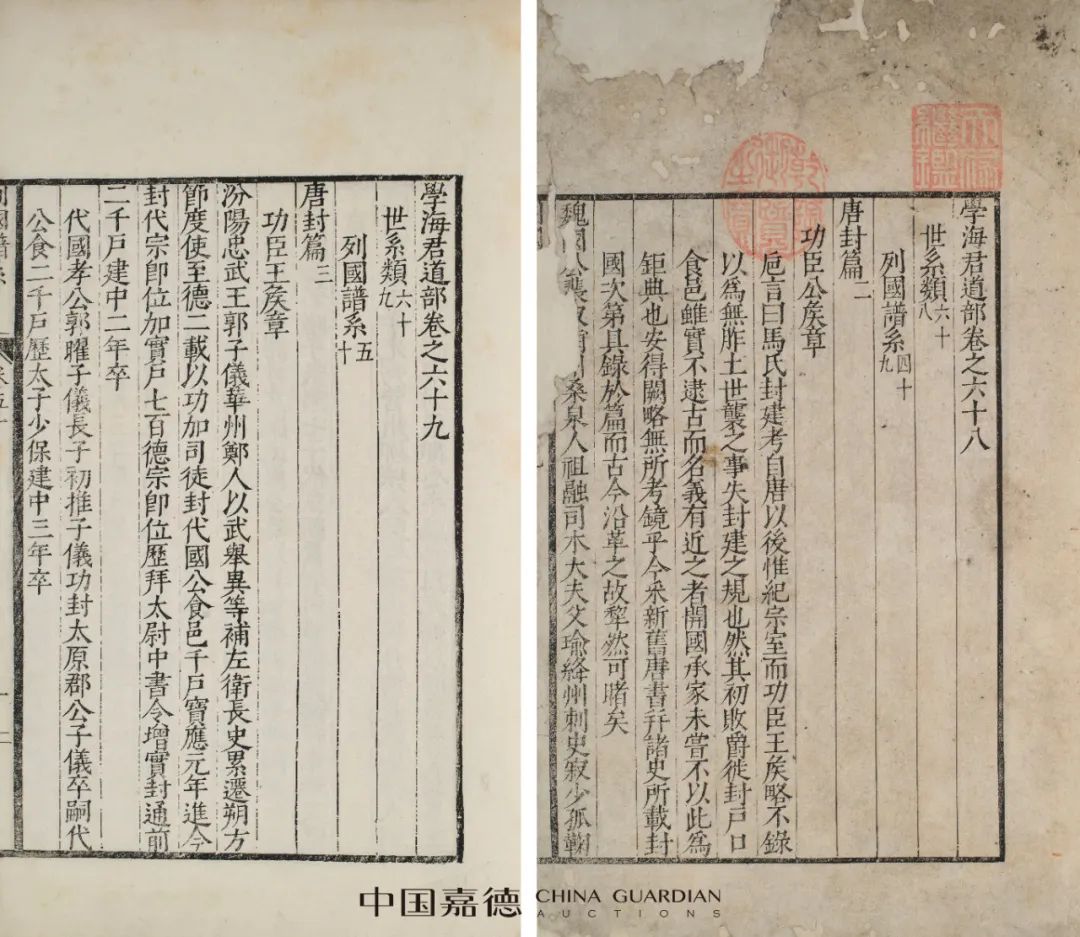 學海君道部卷之六十八
世系類六十八
列國譜系四十九
唐封篇二
功臣公矦章
巵言曰馬氏封建考自唐以後惟紀宗室而功臣王矦略不錄
以爲無胙土世襲之事失封建之規也然其初敗爵徙封戸口
食邑雖實不逮古而名義有近之者開國承家未嘗不以此爲
鉅典也安得闕略無所考鏡乎今采新舊唐書幷諸史所載封
國次第具錄於篇而古今沿革之故犂然可睹矣
魏國公裴寂桑泉人祖融司木大夫父瑜絳州刺史寂少孤鞠
學海君道部卷之六十九
世系類六十九
列國譜系五十
唐封篇三
功臣王矦章
汾陽忠武王郭子儀華州鄭人以武舉異等補左衛長史累遷朔方
節度使至德二載以功加司徒封代國公食邑千戸寶應元年進今
封代宗卽位加實戸七百德宗卽位歷拜太尉中書令增實封通前
二千戸建中二年卒
代國孝公郭曜子儀長子初推子儀功封太原郡公子儀卒嗣代
公食二千戸歷太子少保建中三年卒
中国嘉德
CHINA GUARDIAN
AUCTIONS